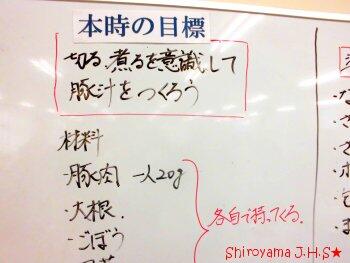 本時の目標
切る、煮るを意識して
豚汁をつくろう
材料
・豚肉 一人20g
・大根.
・ごぼう
各自で持ってくる.
Shiroyama J.H.S★